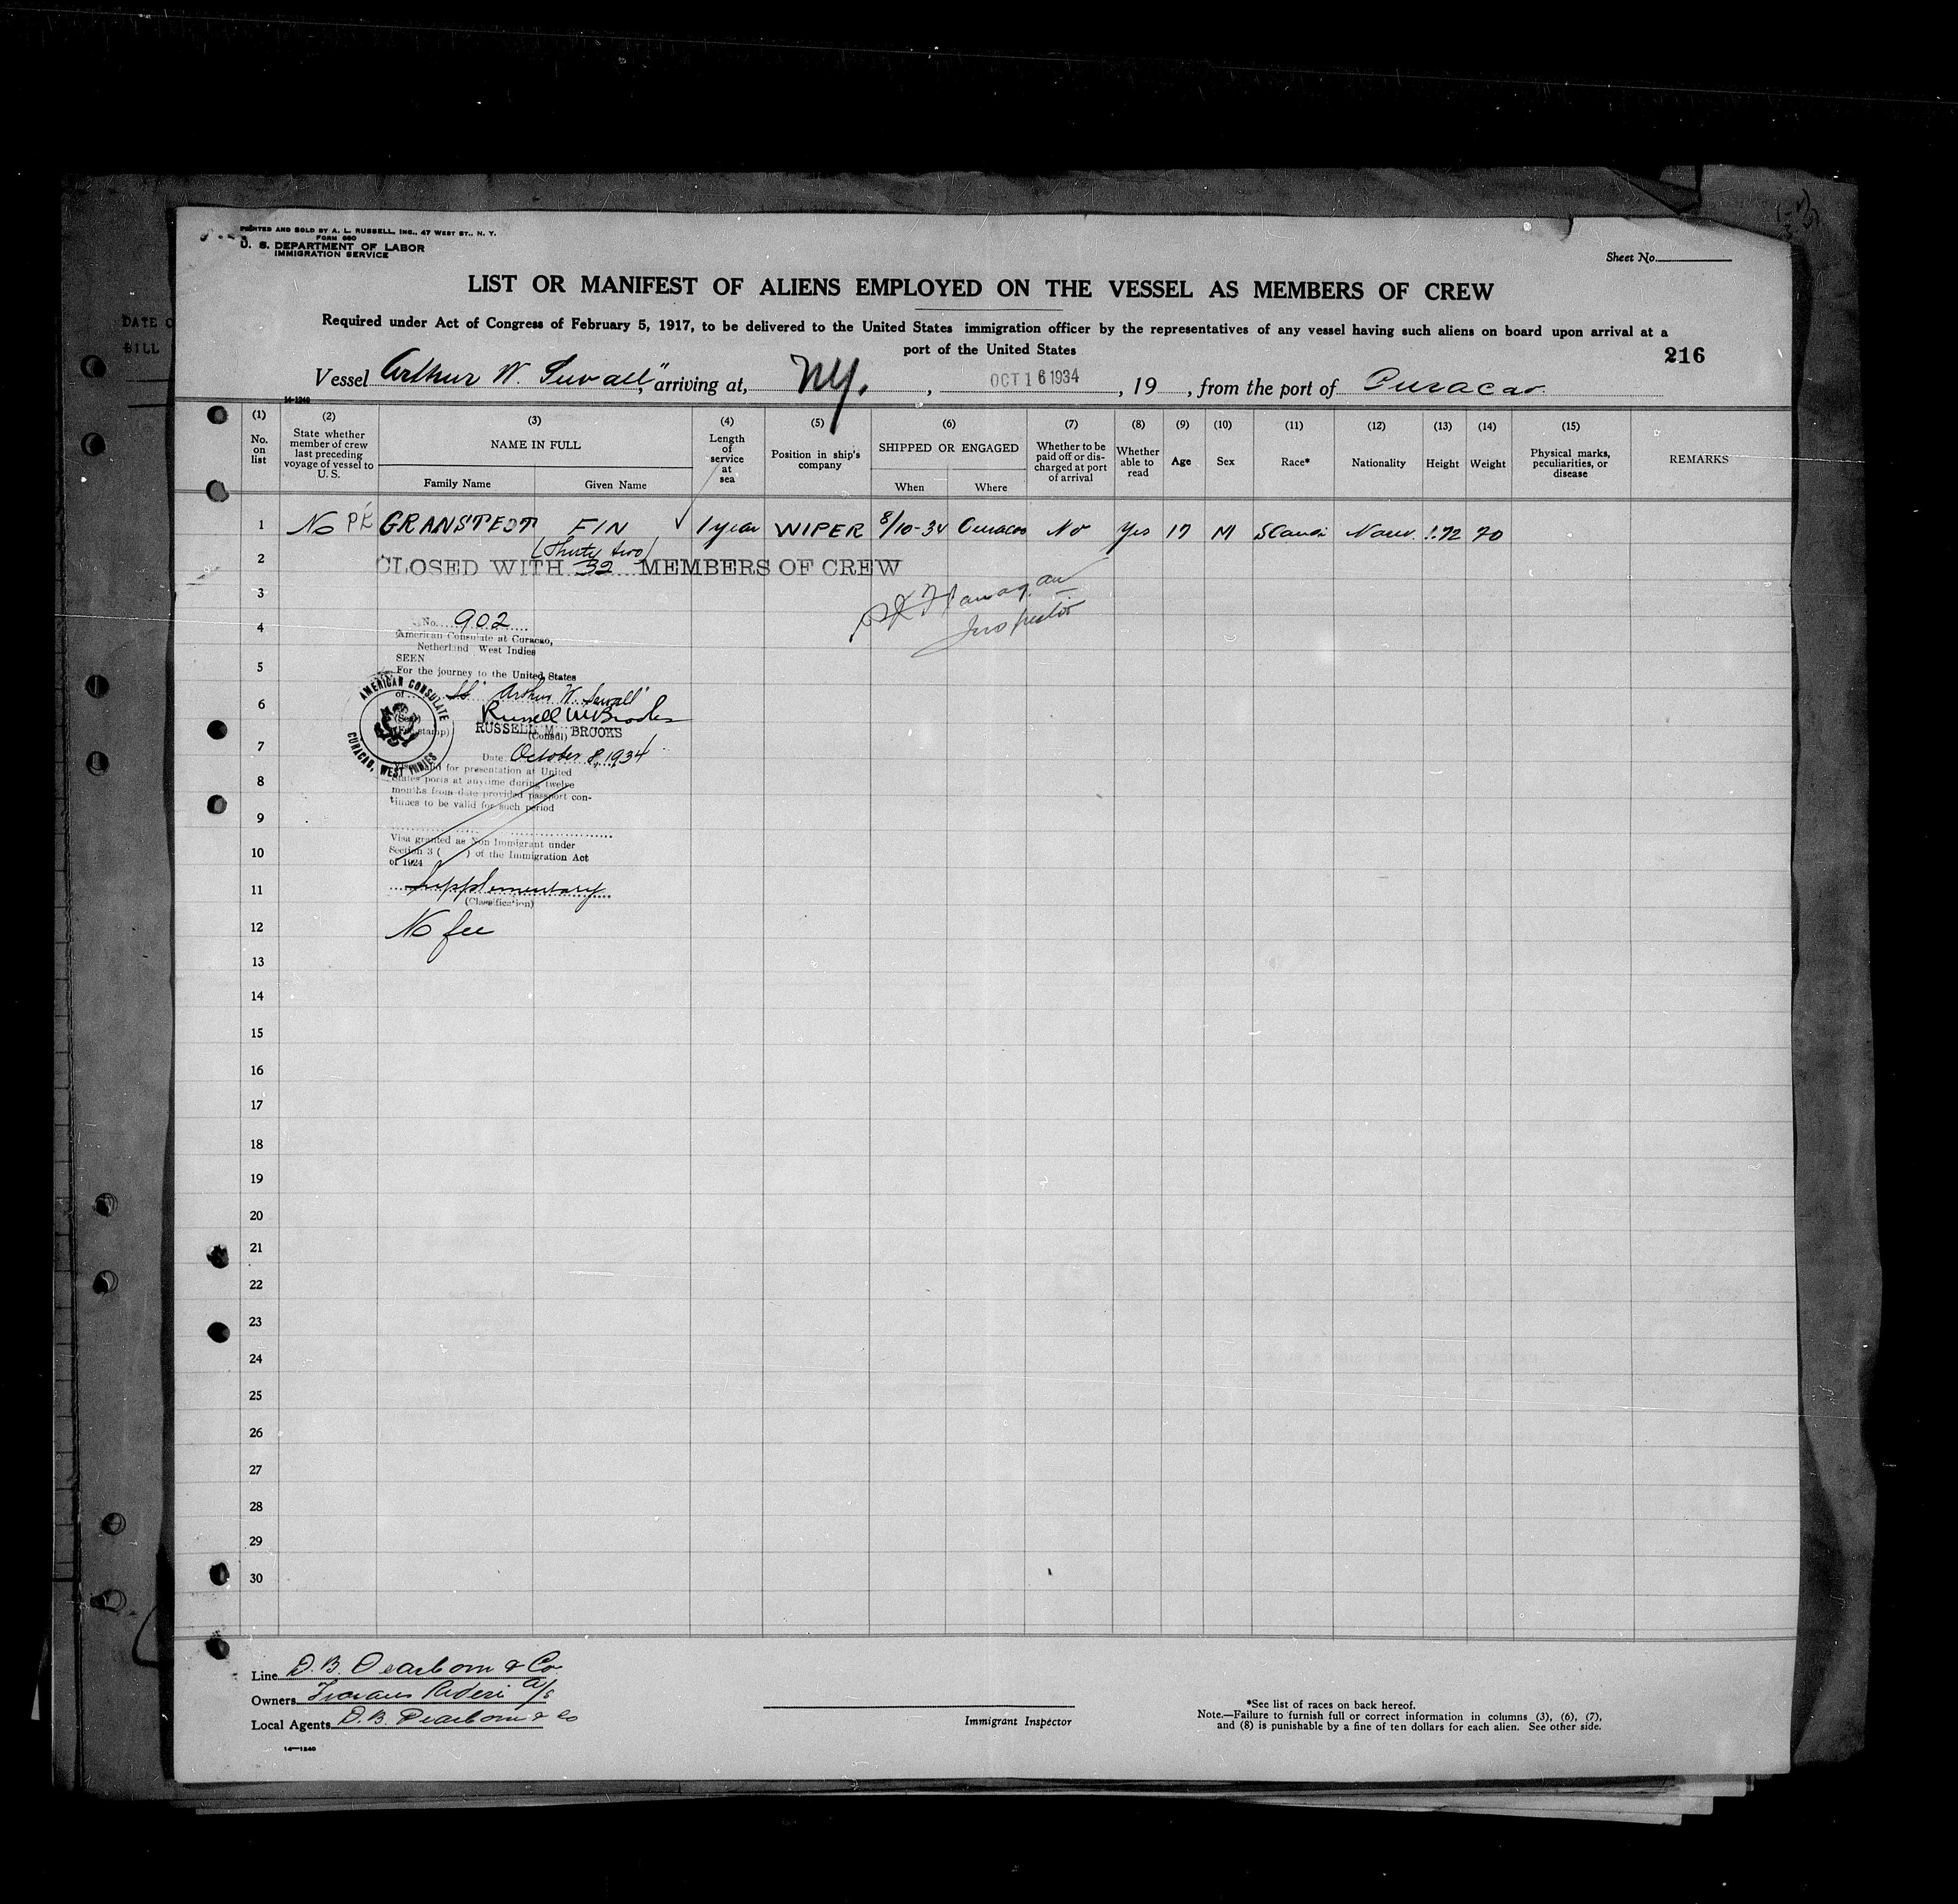 PRINTED AND SOLD BY A. L. RUSSELL, INC., 47 WEST ST., N. Y.
FORM 680
U. S. DEPARTMENT OF LABOR
IMMIGRATION SERVICE
Sheet No.
LIST OR MANIFEST OF ALIENS EMPLOYED ON THE VESSEL AS MEMBERS OF CREW
Required under Act of Congress of February 5, 1917, to be delivered to the United States immigration officer by the representatives of any vessel having such aliens on board upon arrival at a
port of the United States
216
Vessel Arthur W. Sewall", arriving at, NY. , OCT 16 1934 , 19 , from the port of Curacao
14-1240
(1) No. on list
(2) State whether member of crew last preceding voyage of vessel to U. S.
(3) NAME IN FULL
Family Name Given Name
(4) Length of service at sea
(5) Position in ship's company
(6) SHIPPED OR ENGAGED
When Where
(7) Whether to be paid off or discharged at port of arrival
(8) Whether able to read
(9) Age
(10) Sex
(11) Race*
(12) Nationality
(13) Height
(14) Weight
(15) Physical marks, peculiarities, or disease
REMARKS
1 No GRANSTEDT FIN 1 year WIPER 8/10-34 Curacao No Yes 17 M Scandi Norw. 1.72 70
(Thirty two)
2 CLOSED WITH 32 MEMBERS OF CREW
3
Flanagan
Inspector
4 No. 902
American Consulate at Curacao,
Netherland West Indies
SEEN
5 For the journey to the United States
of SS "Arthur W. Sewall"
6 Russell M Brooks
RUSSELL M. BROOKS
(Seal) (Fee stamp) (Consul)
AMERICAN CONSULATE
CURACAO, WEST INDIES
7 Date October 8, 1934
valid for presentation at United
8 States ports at anytime during twelve
months from date provided passport con-
tinues to be valid for such period
9
Visa granted as Non Immigrant under
10 Section 3 ( ) of the Immigration Act
of 1924
11 Supplementary
(Classification)
12 No fee
13
14
15
16
17
18
19
20
21
22
23
24
25
26
27
28
29
30
Line D. B. Dearborn & Co.
Owners Rederi A/S
Local Agents D. B. Dearborn & Co
Immigrant Inspector
*See list of races on back hereof.
Note.—Failure to furnish full or correct information in columns (3), (6), (7),
and (8) is punishable by a fine of ten dollars for each alien. See other side.
14—1240
DATE O
BILL